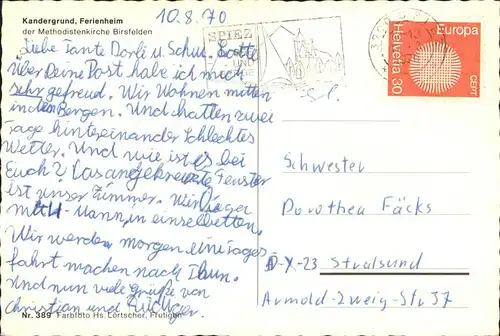 Kandergrund, Ferienheim
der Methodistenkirche Birsfelden
10.8.70
SPIEZ
UND
Helvetia 30
Europa
CEPT
Liebe Tante Dorli u. Schw. Lotte
über Deine Post habe ich mich
sehr gefreud. Wir Wohnen mitten
in den Bergen. Und hatten zwei
Tage hintereinander Schlechtes
Wetter. Und wie ist es bei
Euch? Das angekreuzte Fenster
ist unser Zimmer. Wir
Mann, in einzelbetten,
Wir werden morgen eine Tages
fahrt machen nach Thun.
Und nun viele grüße von
Christian und
Schwester
Dorothea Fäcks
D-X-23 Stralsund
Arnold-Zweig-Str 37
Nr. 389 Farbfoto Hs. Lörtscher, Frutigen